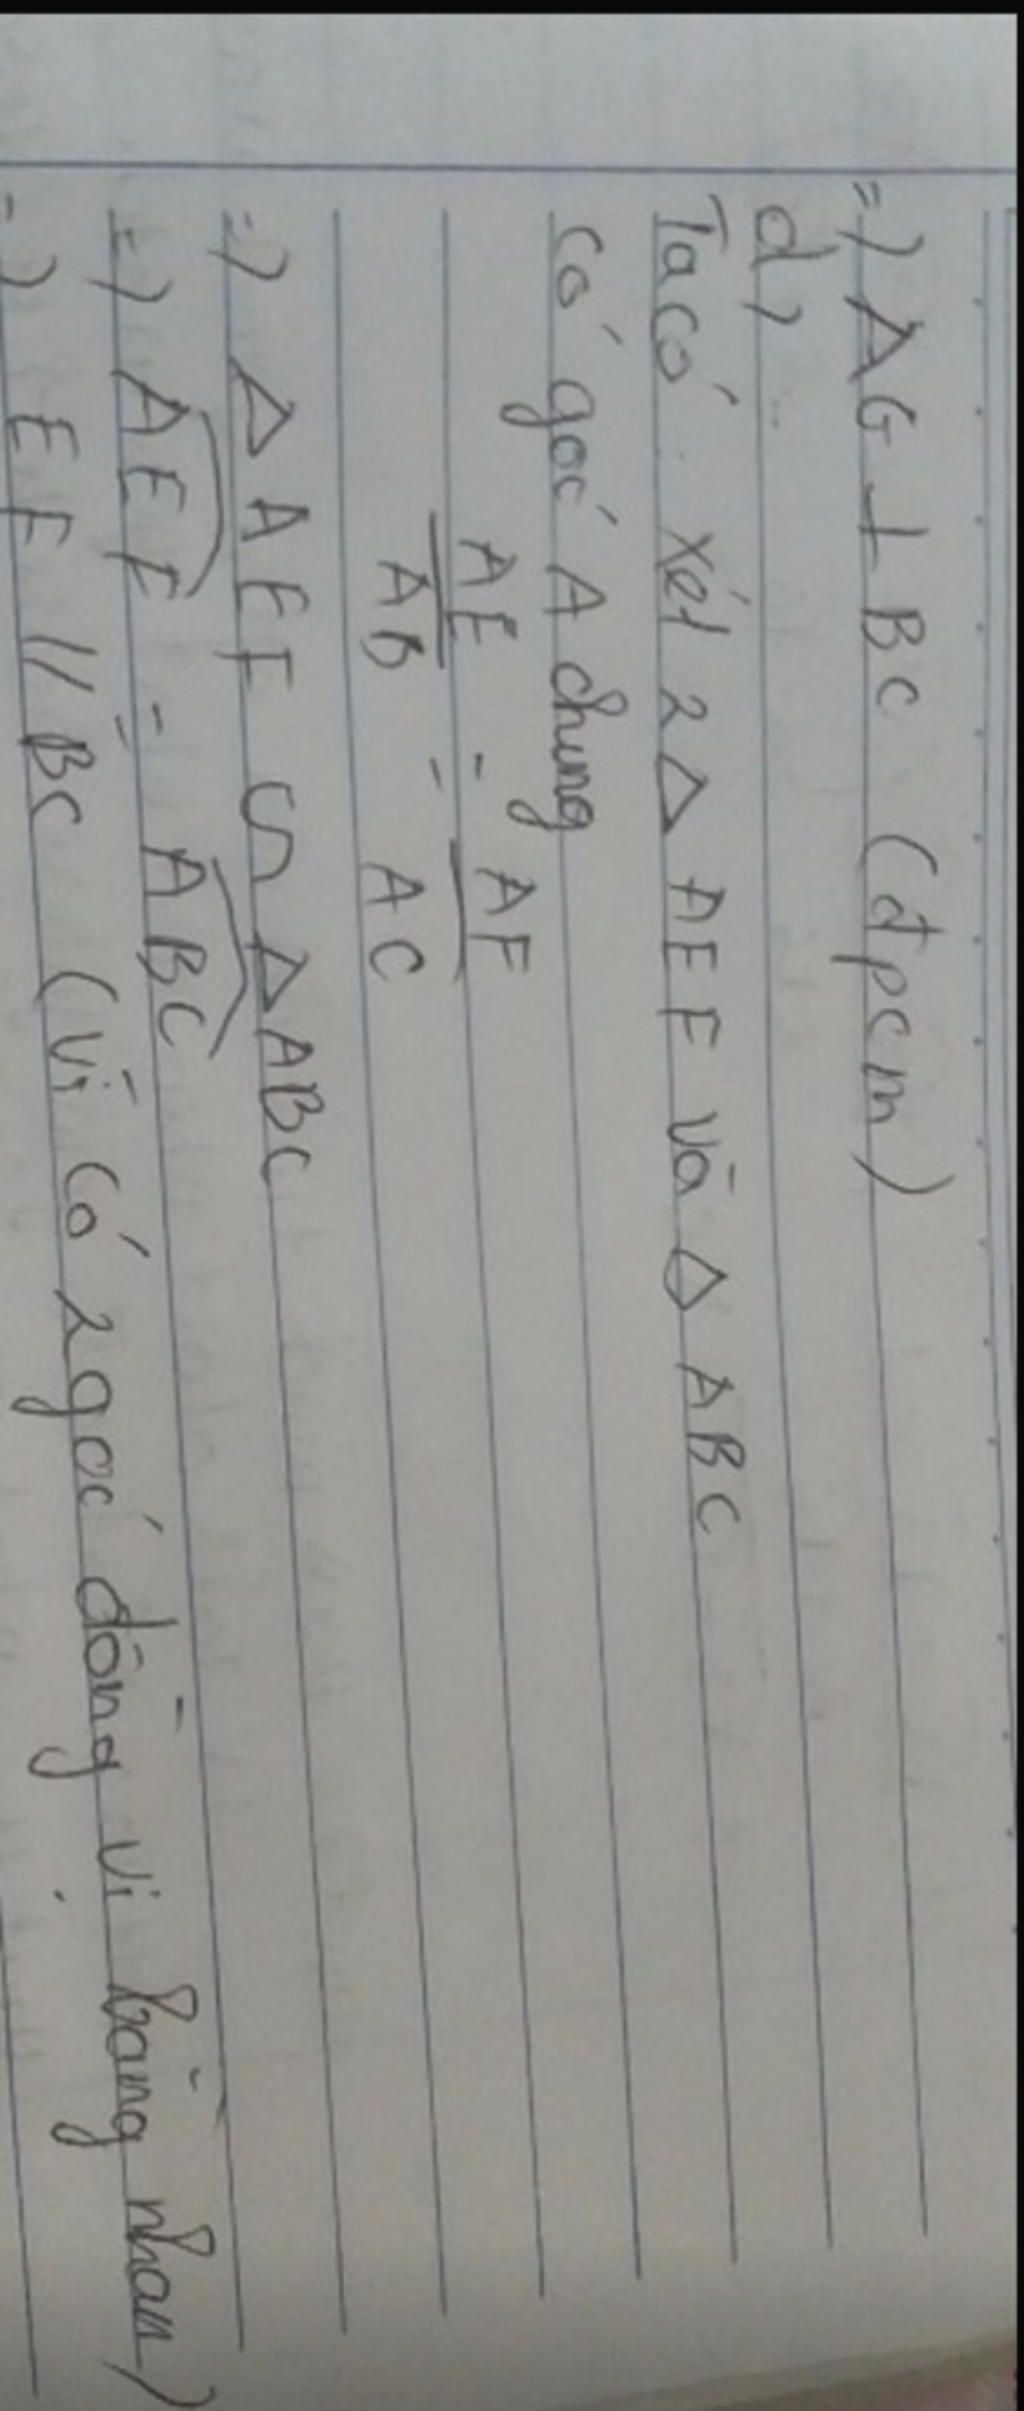 =) AG ⊥ BC (đpcm)
d)
Ta có xét 2 Δ AEF và Δ ABC
Có góc A chung
AE/AB = AF/AC
=) Δ AEF ∽ Δ ABC
=) AEF = ABC
=) EF // BC (vì có 2 góc đồng vị bằng nhau)